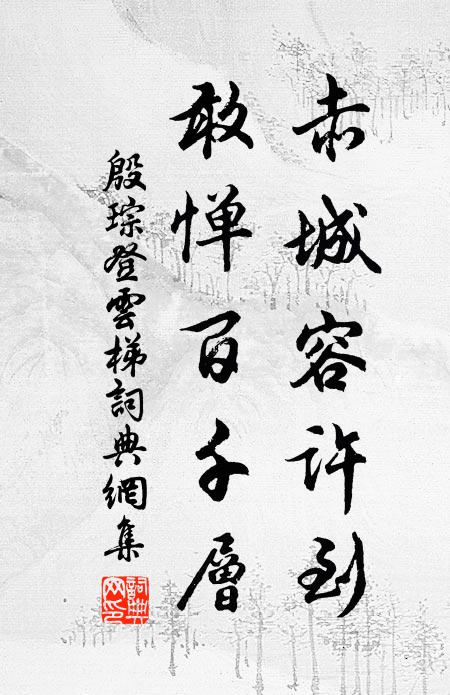 赤城容许到
敢惮百千層
殷琮登雲梯詞典網集
詞典網印